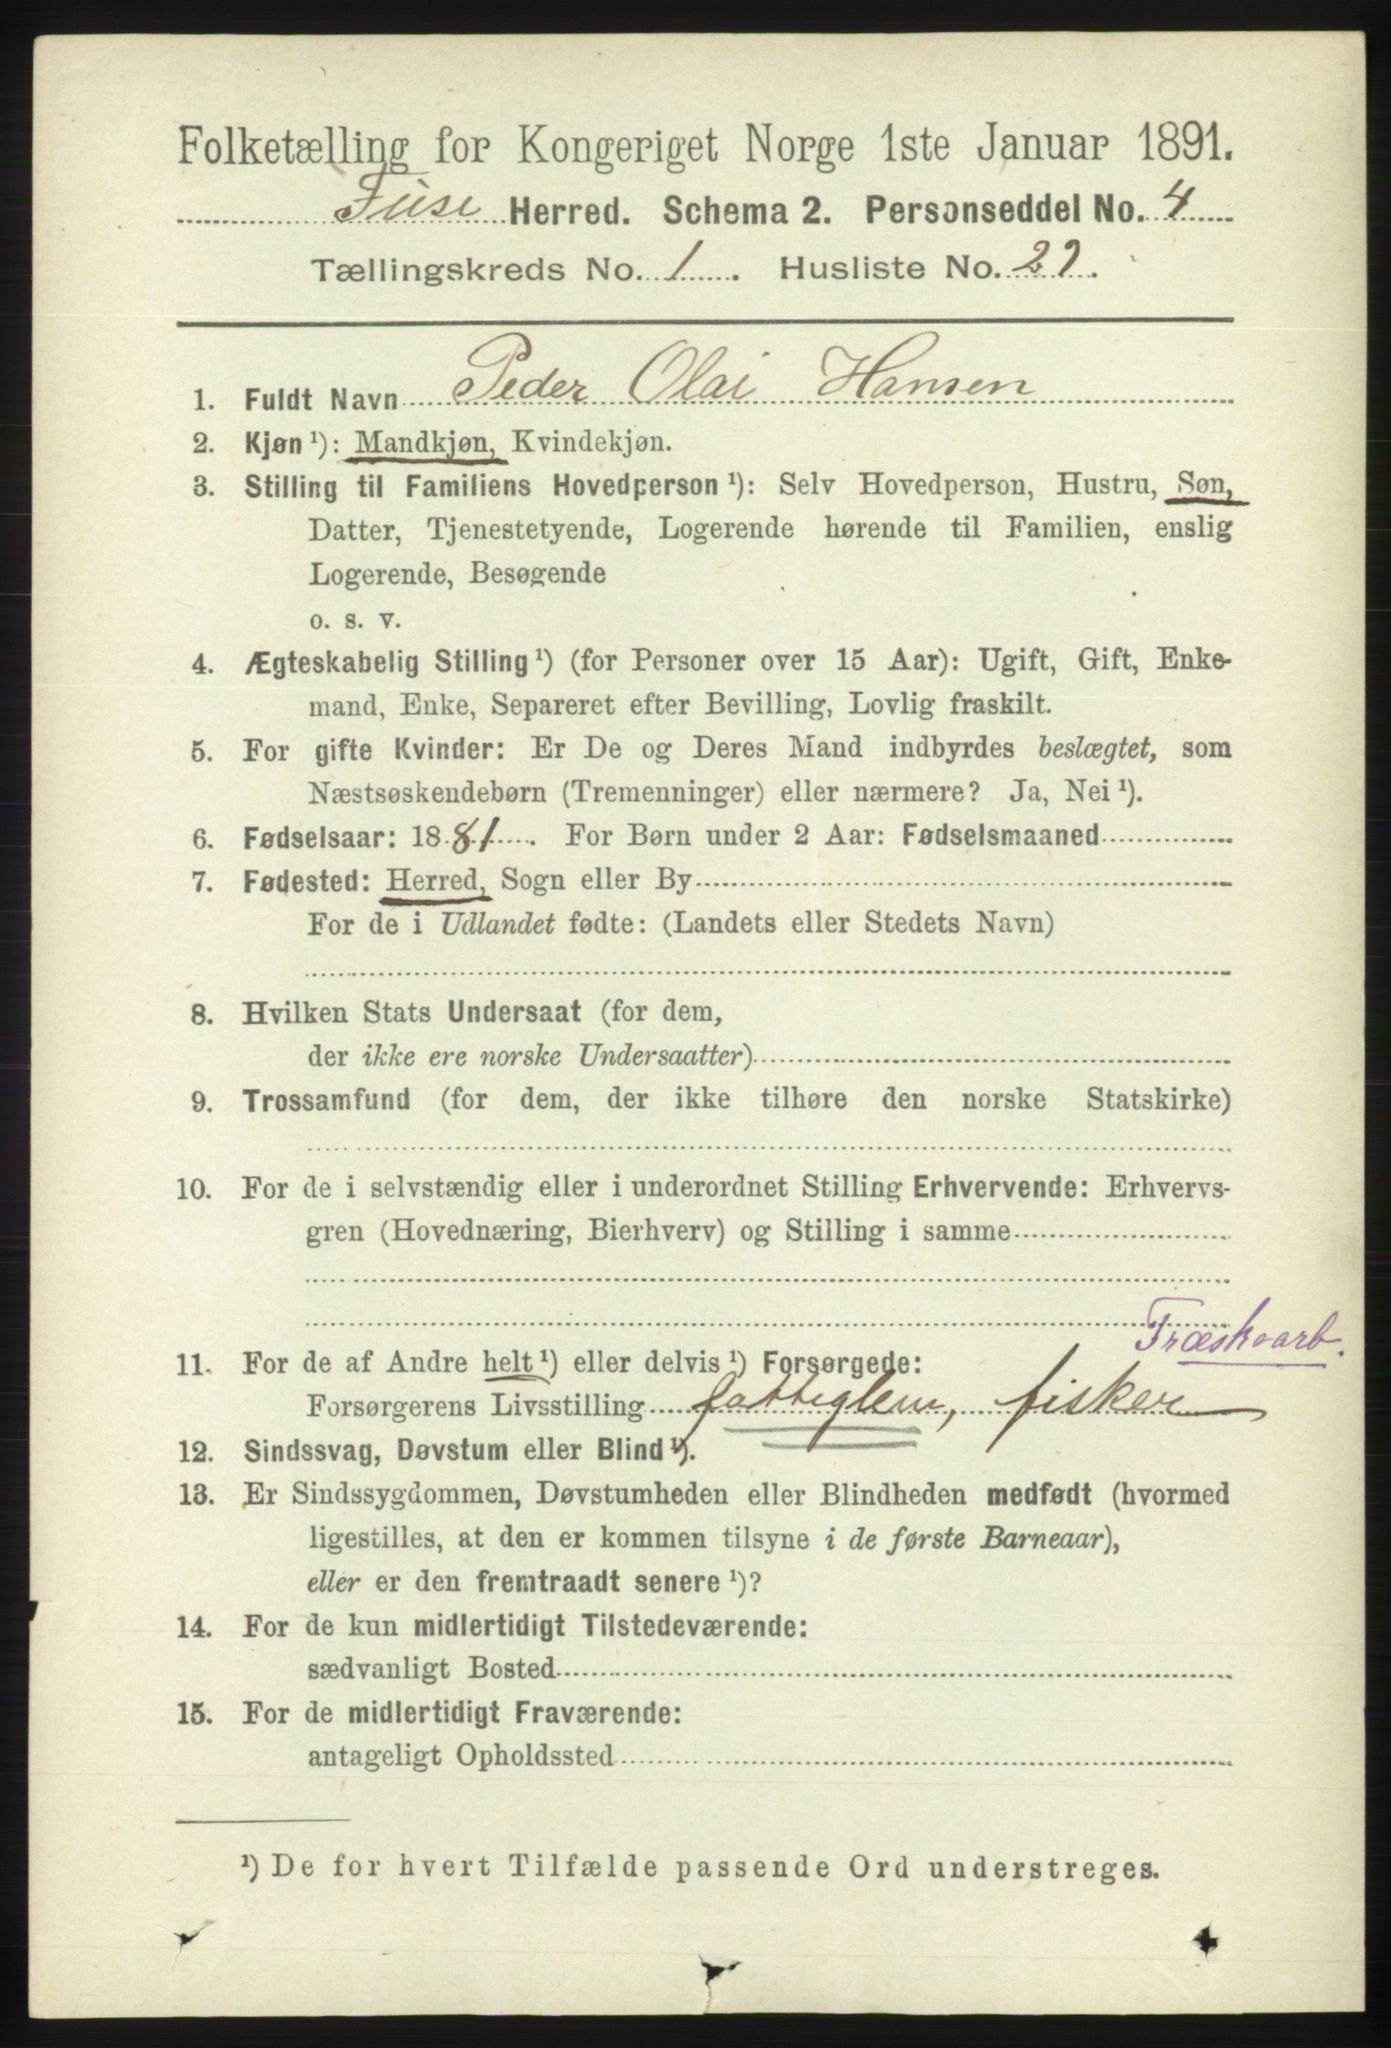 Folketælling for Kongeriget Norge 1ste Januar 1891.
Fuse Herred. Schema 2. Personseddel No. 4
Tællingskreds No. 1. Husliste No. 27.
1. Fuldt Navn Peder Olai Hansen
2. Kjøn¹): Mandkjøn, Kvindekjøn.
3. Stilling til Familiens Hovedperson¹): Selv Hovedperson, Hustru, Søn,
Datter, Tjenestetyende, Logerende hørende til Familien, enslig
Logerende, Besøgende
o. s. v.
4. Ægteskabelig Stilling¹) (for Personer over 15 Aar): Ugift, Gift, Enke-
mand, Enke, Separeret efter Bevilling, Lovlig fraskilt.
5. For gifte Kvinder: Er De og Deres Mand indbyrdes beslægtet, som
Næstsøskendebørn (Tremenninger) eller nærmere? Ja, Nei¹).
6. Fødselsaar: 1881. For Børn under 2 Aar: Fødselsmaaned
7. Fødested: Herred, Sogn eller By
For de i Udlandet fødte: (Landets eller Stedets Navn)
8. Hvilken Stats Undersaat (for dem,
der ikke ere norske Undersaatter)
9. Trossamfund (for dem, der ikke tilhøre den norske Statskirke)
10. For de i selvstændig eller i underordnet Stilling Erhvervende: Erhvervs-
gren (Hovednæring, Bierhverv) og Stilling i samme
Træskoarb.
11. For de af Andre helt¹) eller delvis¹) Forsørgede:
Forsørgerens Livsstilling fattiglem, fisker
12. Sindssvag, Døvstum eller Blind¹).
13. Er Sindssygdommen, Døvstumheden eller Blindheden medfødt (hvormed
ligestilles, at den er kommen tilsyne i de første Barneaar),
eller er den fremtraadt senere¹)?
14. For de kun midlertidigt Tilstedeværende:
sædvanligt Bosted
15. For de midlertidigt Fraværende:
antageligt Opholdssted
¹) De for hvert Tilfælde passende Ord understreges.